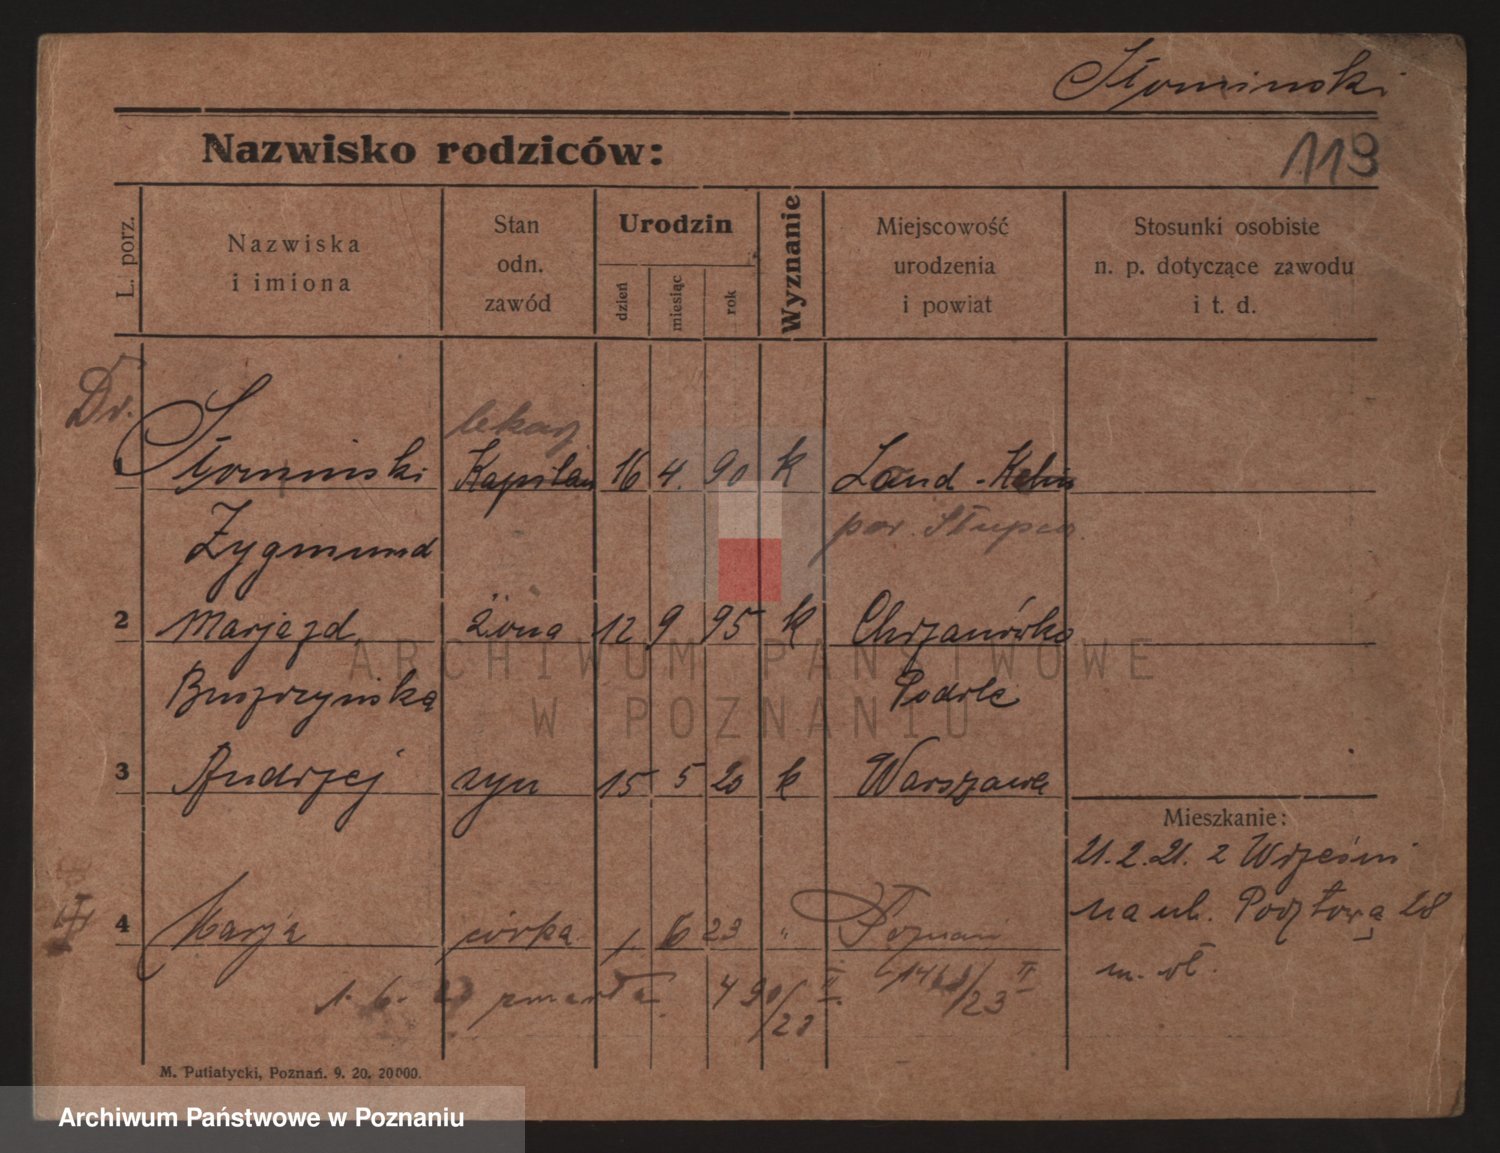 Słomiński
Nazwisko rodziców:
119
L. porz.
Nazwiska
i imiona
Stan
odn.
zawód
Urodzin
dzień
miesiąc
rok
Wyznanie
Miejscowość
urodzenia
i powiat
Stosunki osobiste
n. p. dotyczące zawodu
i t. d.
Dr.
lekarz
1 Słomiński Kapitan 16 4. 90 k Land
Zygmund pow. Słupca
2 Marja zd. żona 12 9 95 k Chrzanówka
Buszczyńska
3 Andrzej syn 15 5 20 k Warszawa
Mieszkanie:
21.2.21. z Wrześni
na ul. Pocztową 28
4 Marja córka 1 6 23 " Poznań
m. wł.
1. 6. 23 zmarła 490/23 II. /23 II
M. Putiatycki, Poznań. 9. 20. 20000.
ARCHIWUM PAŃSTWOWE
W POZNANIU
Archiwum Państwowe w Poznaniu